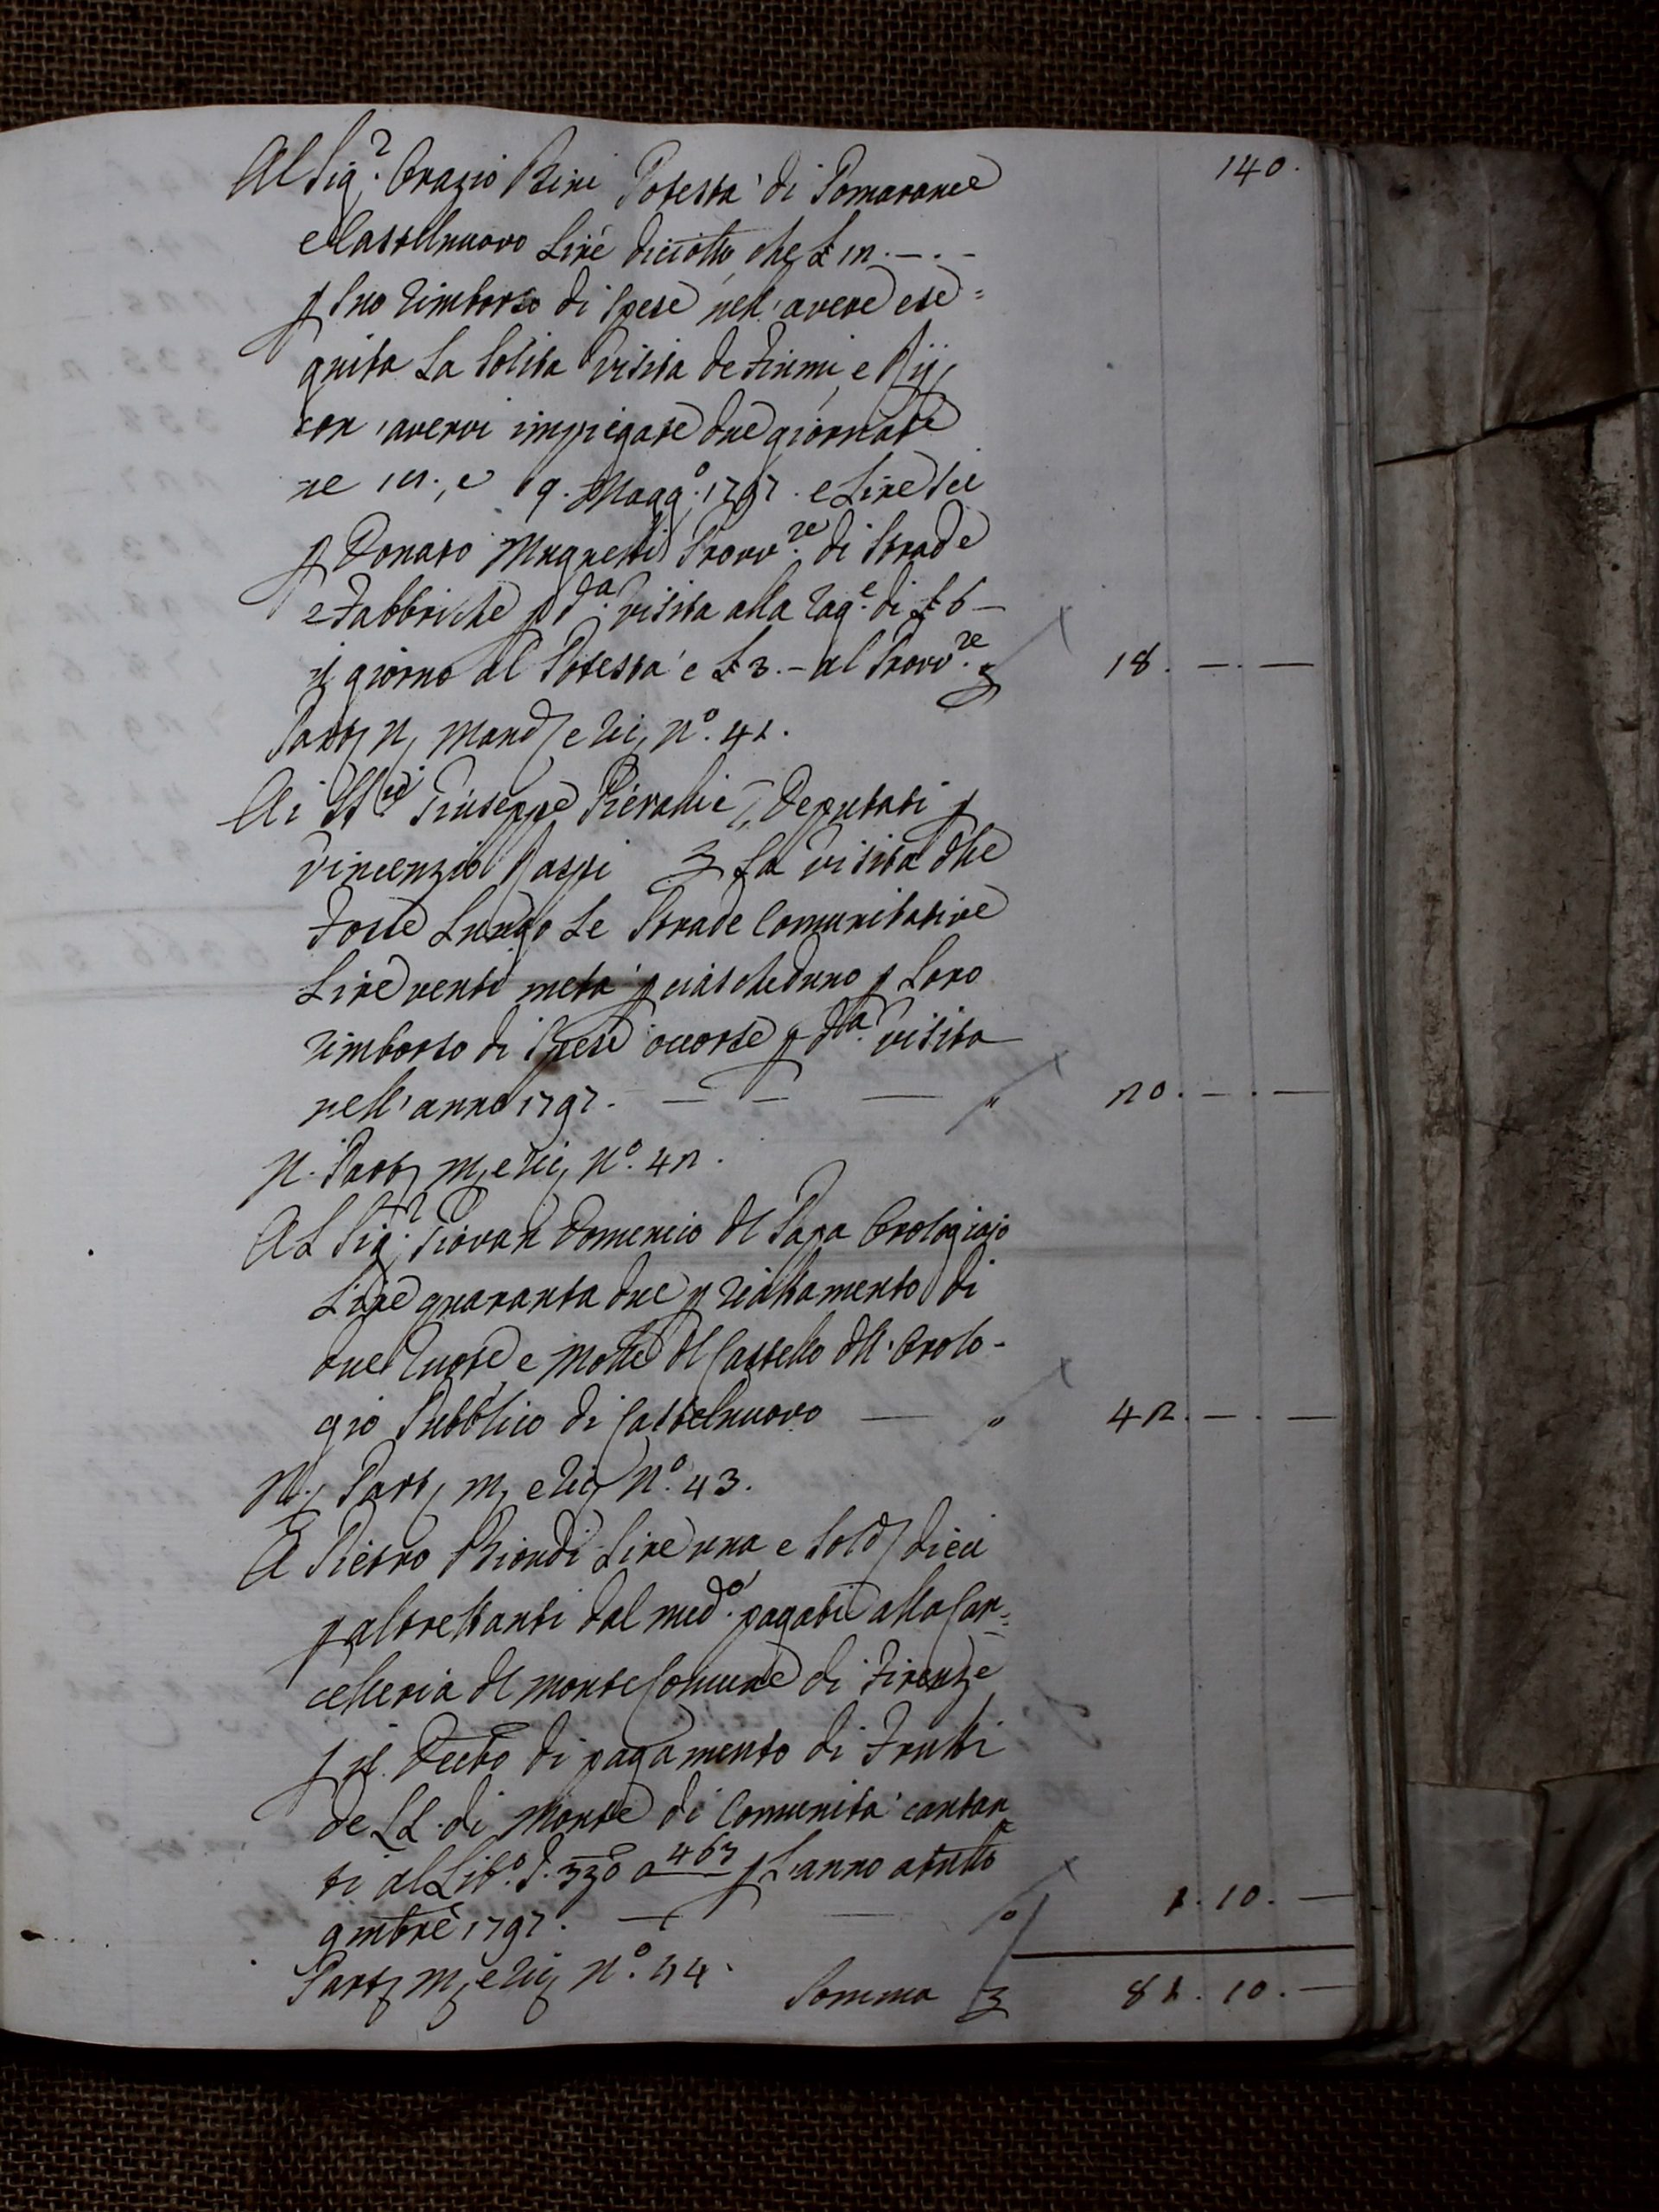 140.
Al Sig.r Orazio Bini Potestà di Pomarance
e Castelnuovo Lire diciotto che £ 12.—.—
p suo rimborso di Spese nell'avere ese=
guita La Solita visita de Fiumi, e Rij,
con avervi impiegate due giornate
ne 18., e 19. Magg.o 1797. e Lire Sei
p Donato Mugnetti Provv.re di Strade
e Fabbriche p d.a visita alla rag.e di £ 6—
il giorno al Potestà e £ 3.— al Provv.re £ 18. —.—
Part, N, Mand, e ric, N.o 41.
Ai SS.ri Giuseppe Pieralli e Deputati p
Vincenzio Raspi La visita dlle
Fosse Lungo Le Strade Comunitative
Lire venti metà p ciascheduno p Loro
rimborso di Spese occorse p d.a visita
nell'anno 1797. — — — " 20. —.—
N. Part, M, e ric, N.o 42.
Al Sig.r Giovan Domenico dl Papa Orologiaio
Lire quaranta due p riattamento di
due Ruote, e Molle dl Castello dll'Orolo-
gio Pubblico di Castelnuovo — " 42. —.—
N., Part, M, e ric, N.o 43.
A Pietro Biondi Lire una e Sold, dieci
p altrettanti dal med.o pagati alla Can=
celleria dl Monte Comune di Firenze
p il Decto di pagamento di Frutti
de LL. di Monte di Comunità cantan
ti al Lib.o P. 330 a 463 p L'anno a tutto
9mbre 1797. — — " 1. 10. —
Part, M, e ric, N.o 44.
Somma £ 81. 10. —